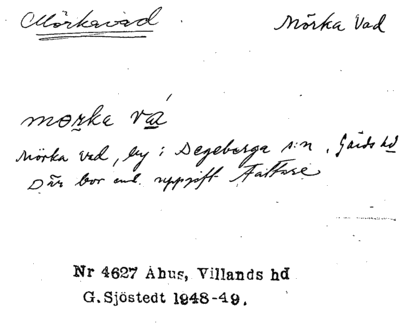 Mörkavad Mörka Vad
mɵrka vá
Mörka vad, by i Degeberga s:n, Gärds hd
Där bor enl. uppgift
Nr 4627 Åhus, Villands hd
G.Sjöstedt 1948-49.